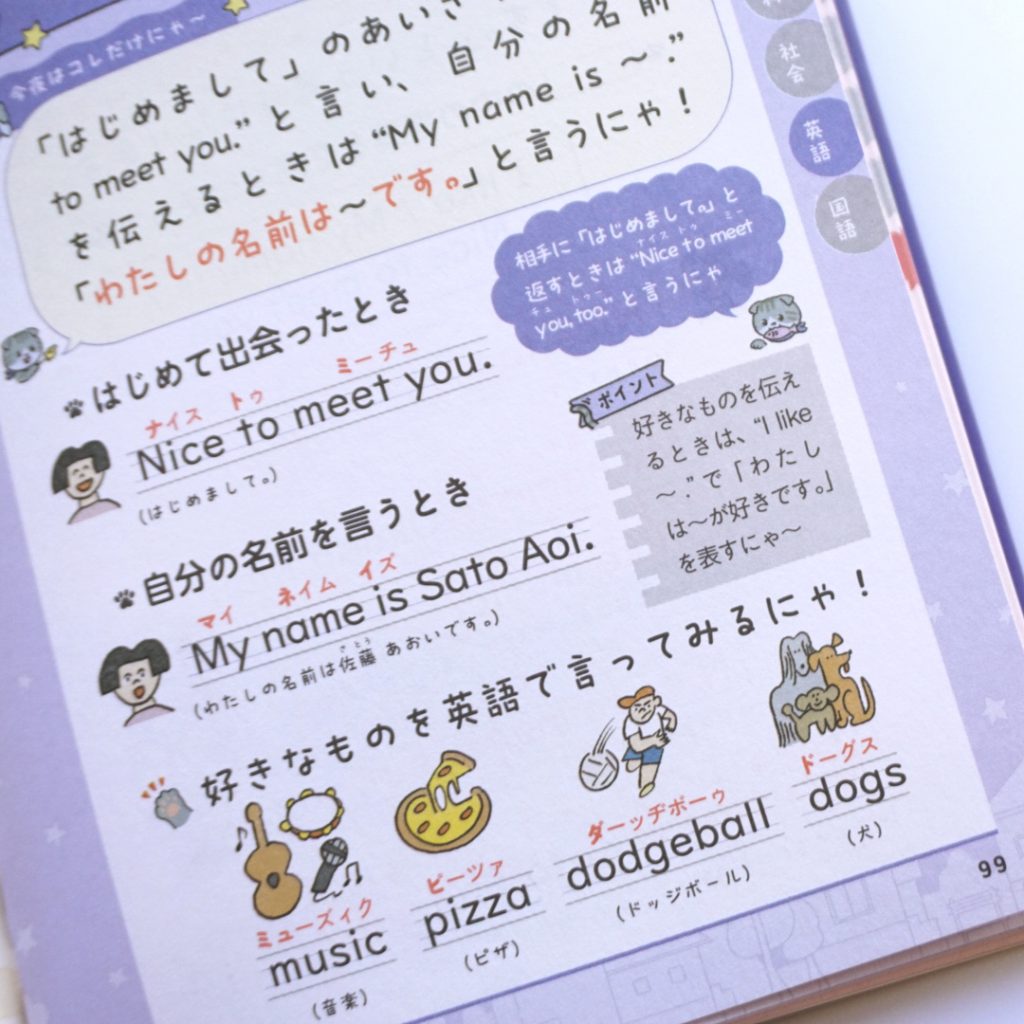 今夜はコレだけにゃ〜
「はじめまして」のあいさ
to meet you.”と言い、自分の名前
を伝えるときは“My name is 〜.”
「わたしの名前は〜です。」と言うにゃ！
社会
英語
国語
相手に「はじめまして。」と
返すときは“Nice to meet
ナイス トゥ ミー
you, too.”と言うにゃ
チュ トゥー
はじめて出会ったとき
ナイス トゥ ミーチュ
Nice to meet you.
(はじめまして。)
ポイント
好きなものを伝え
るときは、“I like
〜.”で「わたし
は〜が好きです。」
を表すにゃ〜
自分の名前を言うとき
マイ ネイム イズ
My name is Sato Aoi.
さとう
(わたしの名前は佐藤 あおいです。)
好きなものを英語で言ってみるにゃ！
ミューズィク
music
(音楽)
ピーツァ
pizza
(ピザ)
ダーッヂボーゥ
dodgeball
(ドッジボール)
ドーグス
dogs
(犬)
99